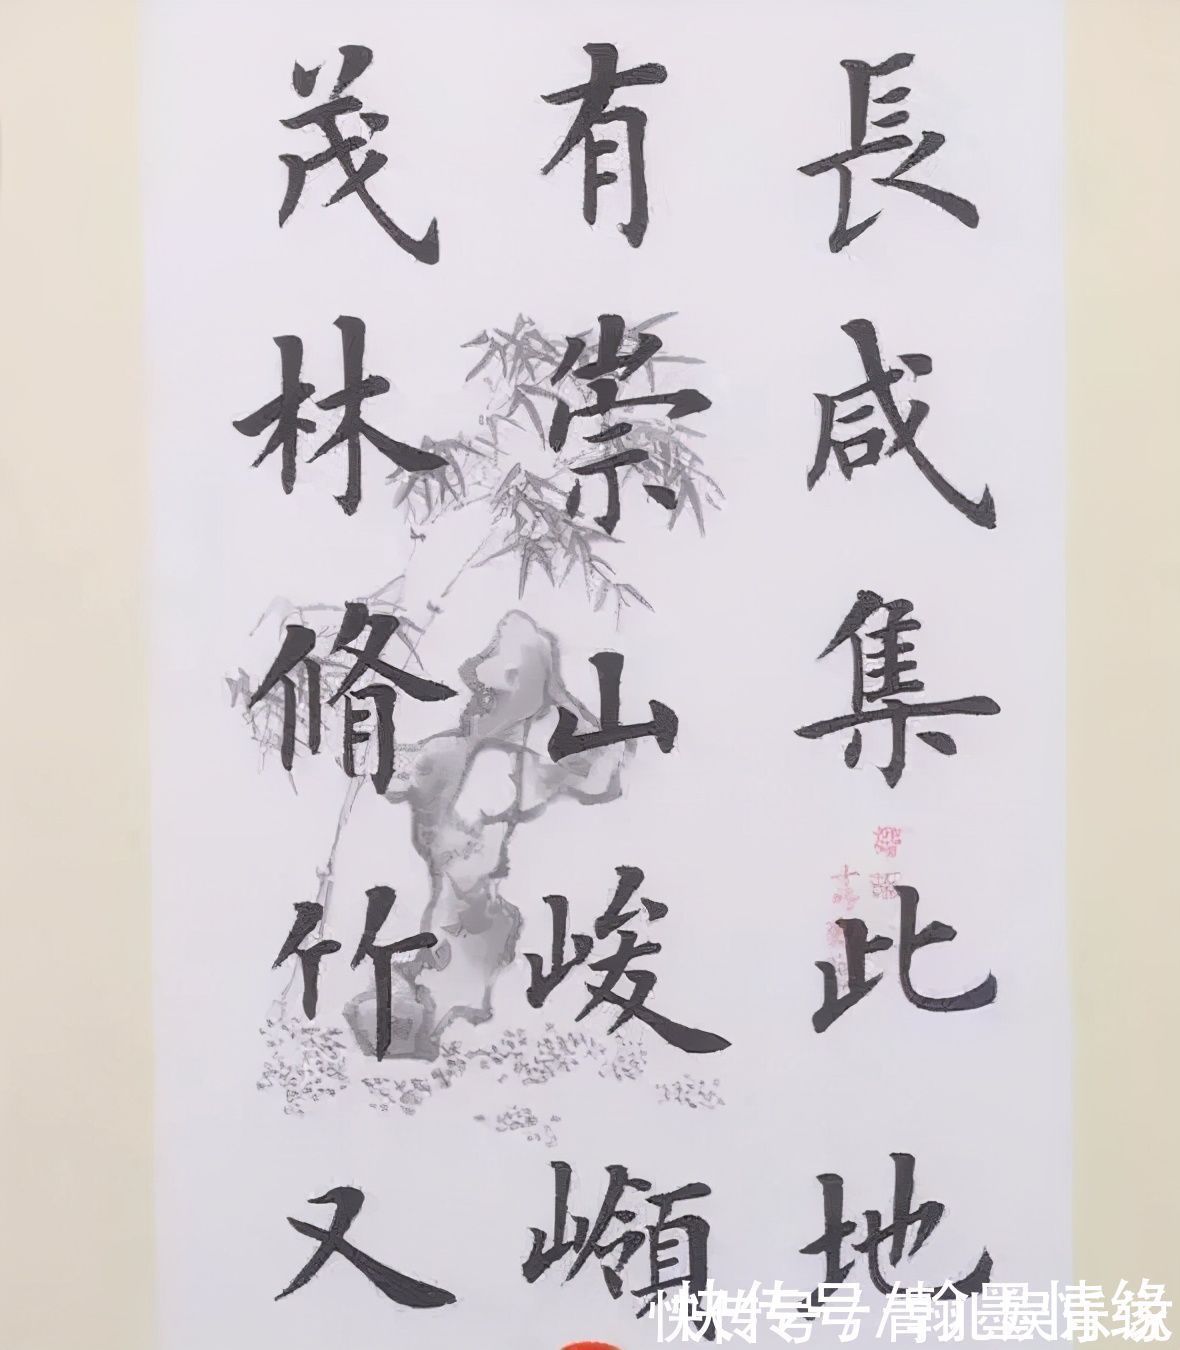 長咸集此地
有崇山峻嶺
茂林脩竹又
快传号/翰墨情缘